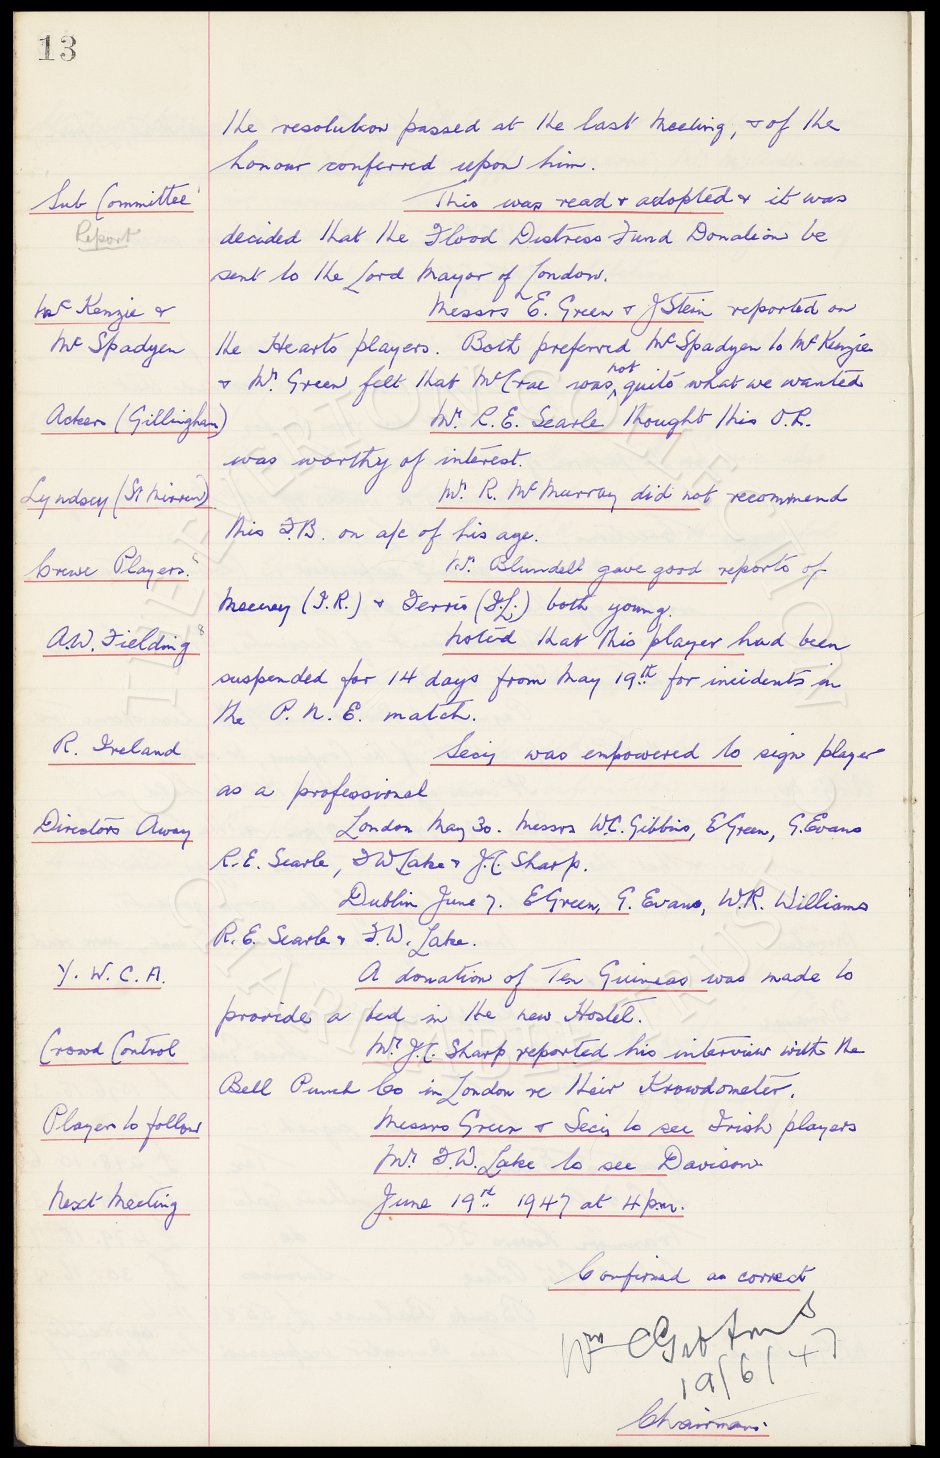 13
the resolution passed at the last Meeting, & of the
honour conferred upon him.
Sub Committee This was read & adopted & it was
Report decided that the Flood Distress Fund Donation be
sent to the Lord Mayor of London.
McKenzie & Messrs E. Green & J Stein reported on
McSpadyen the Hearts players. Both preferred McSpadyen to McKenzie
& Mr. Green felt that McCrae was not quite what we wanted
Ackers (Gillingham) Mr. R. E. Searle thought this O.R.
was worthy of interest.
Lyndsey (St Mirren) Mr. R. McMurray did not recommend
this F.B. on a/c of his age.
Crewe Players. Mr. Blundell gave good reports of
(I.R.) & Ferris (I.L.) both young.
A.W. Fielding Noted that this player had been
suspended for 14 days from May 19th for incidents in
the P. N. E. match.
R. Ireland Secy was empowered to sign player
as a professional
Directors Away London May 30. Messrs W.C. Gibbins, E Green, G. Evans
R.E. Searle, F W Lake & J.C. Sharp.
Dublin June 7. E Green, G. Evans, W.R. Williams
R.E. Searle & F.W. Lake.
Y. W. C. A. A donation of Ten Guineas was made to
provide a bed in the new Hostel.
Crowd Control Mr. J.C. Sharp reported his interview with the
Bell Punch Co in London re their Krowdometer.
Players to follow Messrs Green & Secy to see Irish players
Mr. F.W. Lake to see Davison
Next Meeting June 19th 1947 at 4 p.m.
Confirmed as correct
Wm C Gibbins
19/6/47
Chairman.
THE EVERTON COLLECTION
CHARITABLE TRUST